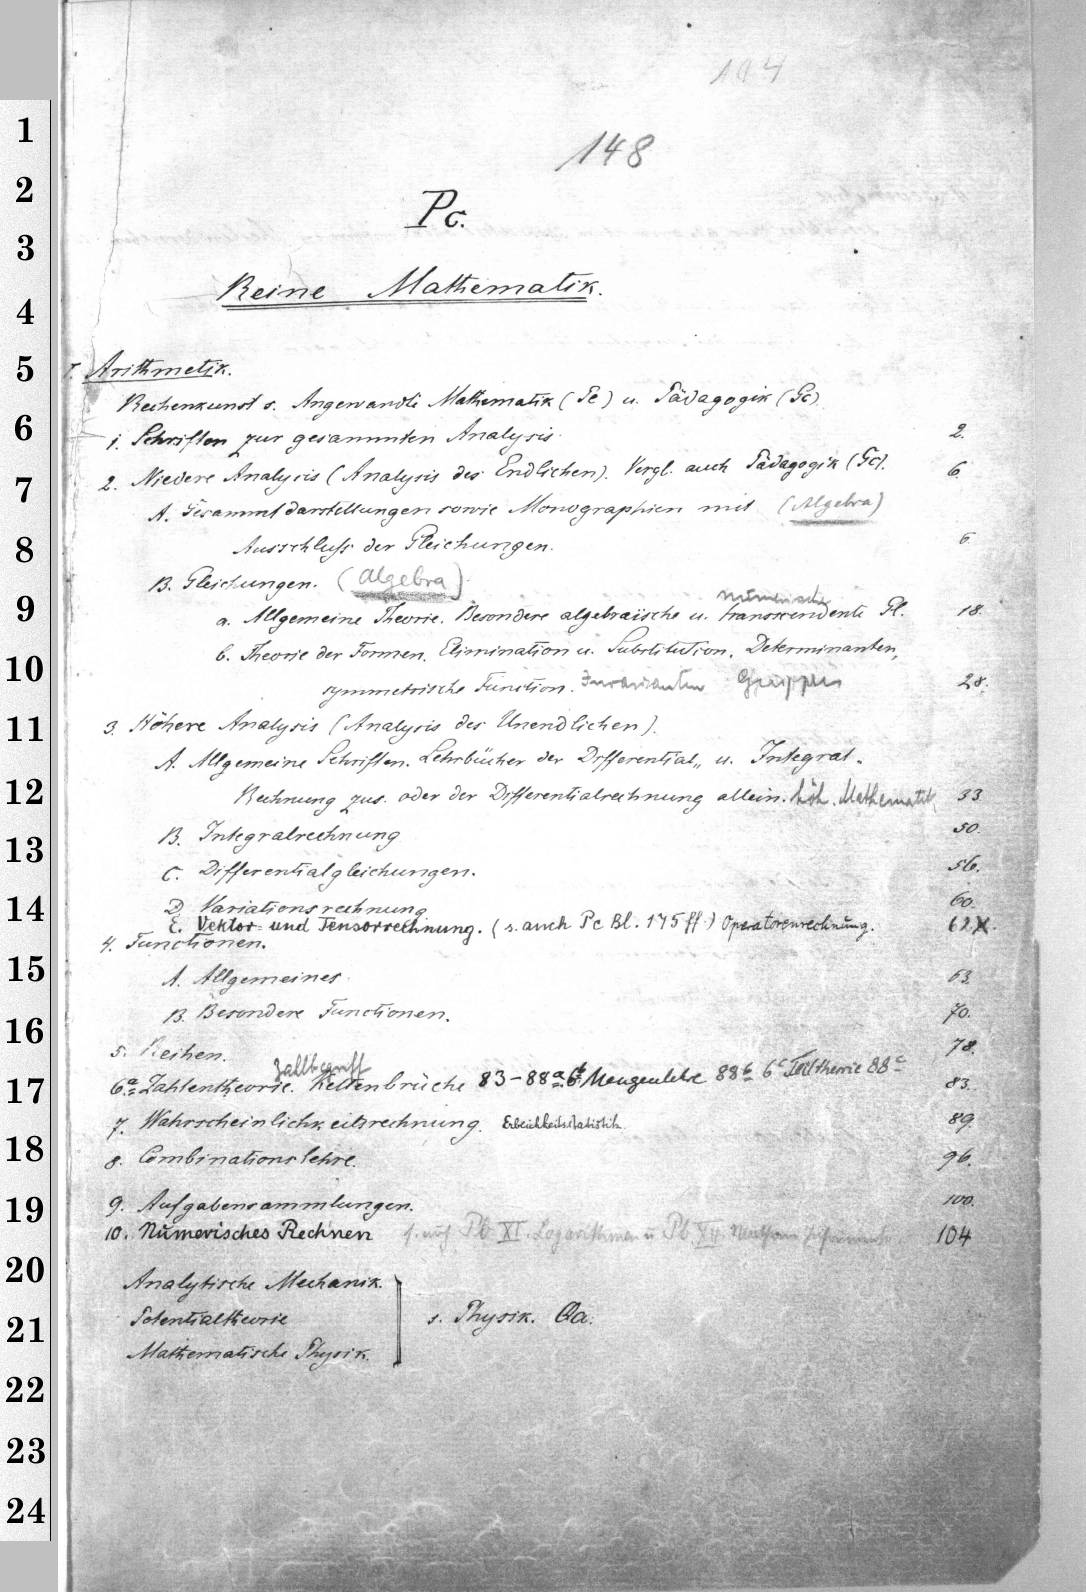 1
2
3
4
5
6
7
8
9
10
11
12
13
14
15
16
17
18
19
20
21
22
23
24
194
148
Pc.
Reine Mathematik.
I. Arithmetik.
Rechenkunst s. Angewandte Mathematik (Pe) u. Pädagogik (Gc)
1. Schriften zur gesammten Analysis. 2.
2. Niedere Analysis (Analysis des Endlichen). Vergl. auch Pädagogik (Gc). 6.
A. Gesammtdarstellungen sowie Monographien mit (Algebra)
Ausschluss der Gleichungen. 6.
B. Gleichungen. (Algebra)
numerische
a. Allgemeine Theorie. Besondere algebraische u. transcendente Gl. 18.
b. Theorie der Formen. Elimination u. Substitution. Determinanten,
symmetrische Function. Invarianten Gruppen 28.
3. Höhere Analysis (Analysis des Unendlichen).
A. Allgemeine Schriften. Lehrbücher der Differential- u. Integral-
Rechnung zus. oder der Differentialrechnung allein. höh. Mathematik 33
B. Integralrechnung 50.
C. Differentialgleichungen. 56.
D. Variationsrechnung 60.
E. Vektor- und Tensorrechnung. (s. auch Pc Bl. 175 ff.) Operatorenrechnung. 62X.
4. Functionen.
A. Allgemeines 63.
B. Besondere Functionen. 70.
5. Reihen. 78.
Zahlbegriff
6a. Zahlentheorie. Kettenbrüche 83-88a. 6b Mengenlehre 88b 6c Teiltheorie 88c 83.
7. Wahrscheinlichkeitsrechnung. Erblichkeitsstatistik 89.
8. Combinationslehre. 96.
9. Aufgabensammlungen. 100.
10. Numerisches Rechnen s. auch Pb XI. Logarithmen u Pb XII. Mathem Instrumente 104
Analytische Mechanik.
Potentialtheorie s. Physik. Qa.
Mathematische Physik.